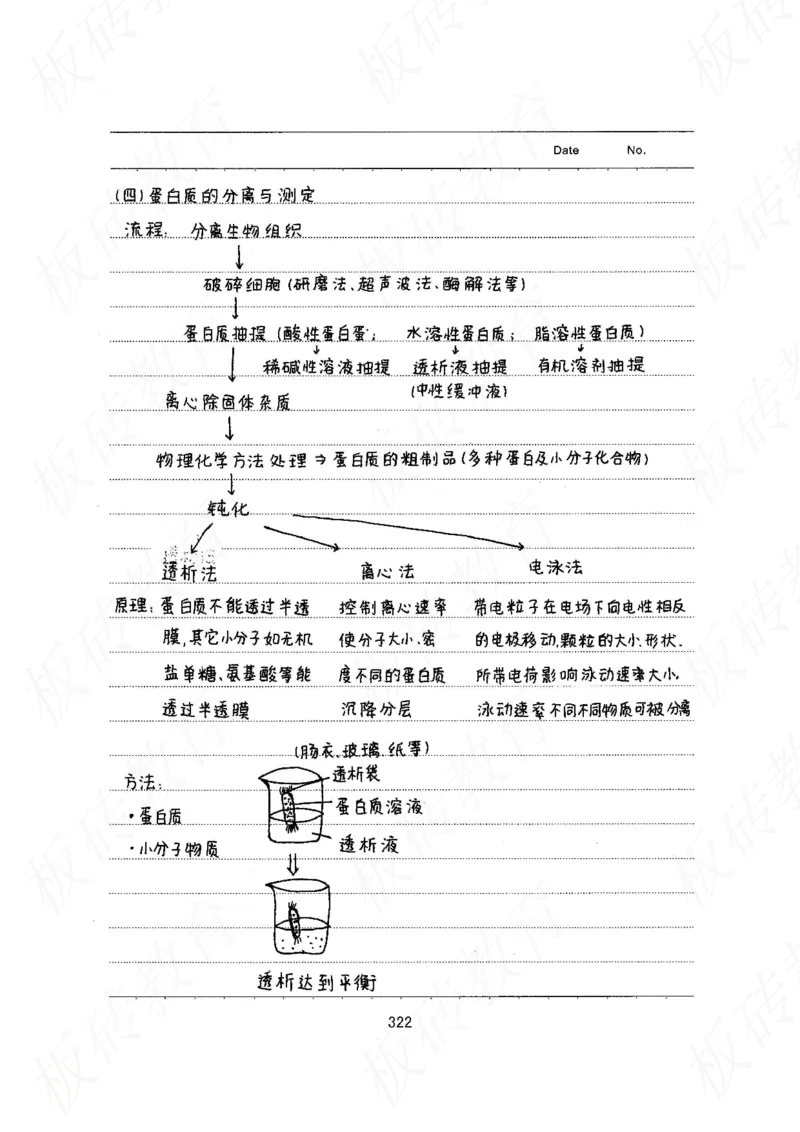 Date No.
(四)蛋白质的分离与测定
流程: 分离生物组织
破碎细胞(研磨法、超声波法、酶解法等)
蛋白质抽提(酸性蛋白蛋; 水溶性蛋白质; 脂溶性蛋白质)
稀碱性溶液抽提 透析液抽提 有机溶剂抽提
(中性缓冲液)
离心除固体杂质
物理化学方法处理⇒蛋白质的粗制品(多种蛋白及小分子化合物)
钝化
透析法 离心法 电泳法
原理:蛋白质不能透过半透 控制离心速率 带电粒子在电场下向电性相反
膜,其它小分子如无机 使分子大小、密 的电极移动,颗粒的大小、形状.
盐单糖、氨基酸等能 度不同的蛋白质 所带电荷影响泳动速率大小,
透过半透膜 沉降分层 泳动速率不同不同物质可被分离
(肠衣、玻璃.纸等)
方法: 透析袋
·蛋白质 蛋白质溶液
·小分子物质 透析液
透析达到平衡
322
板砖教育